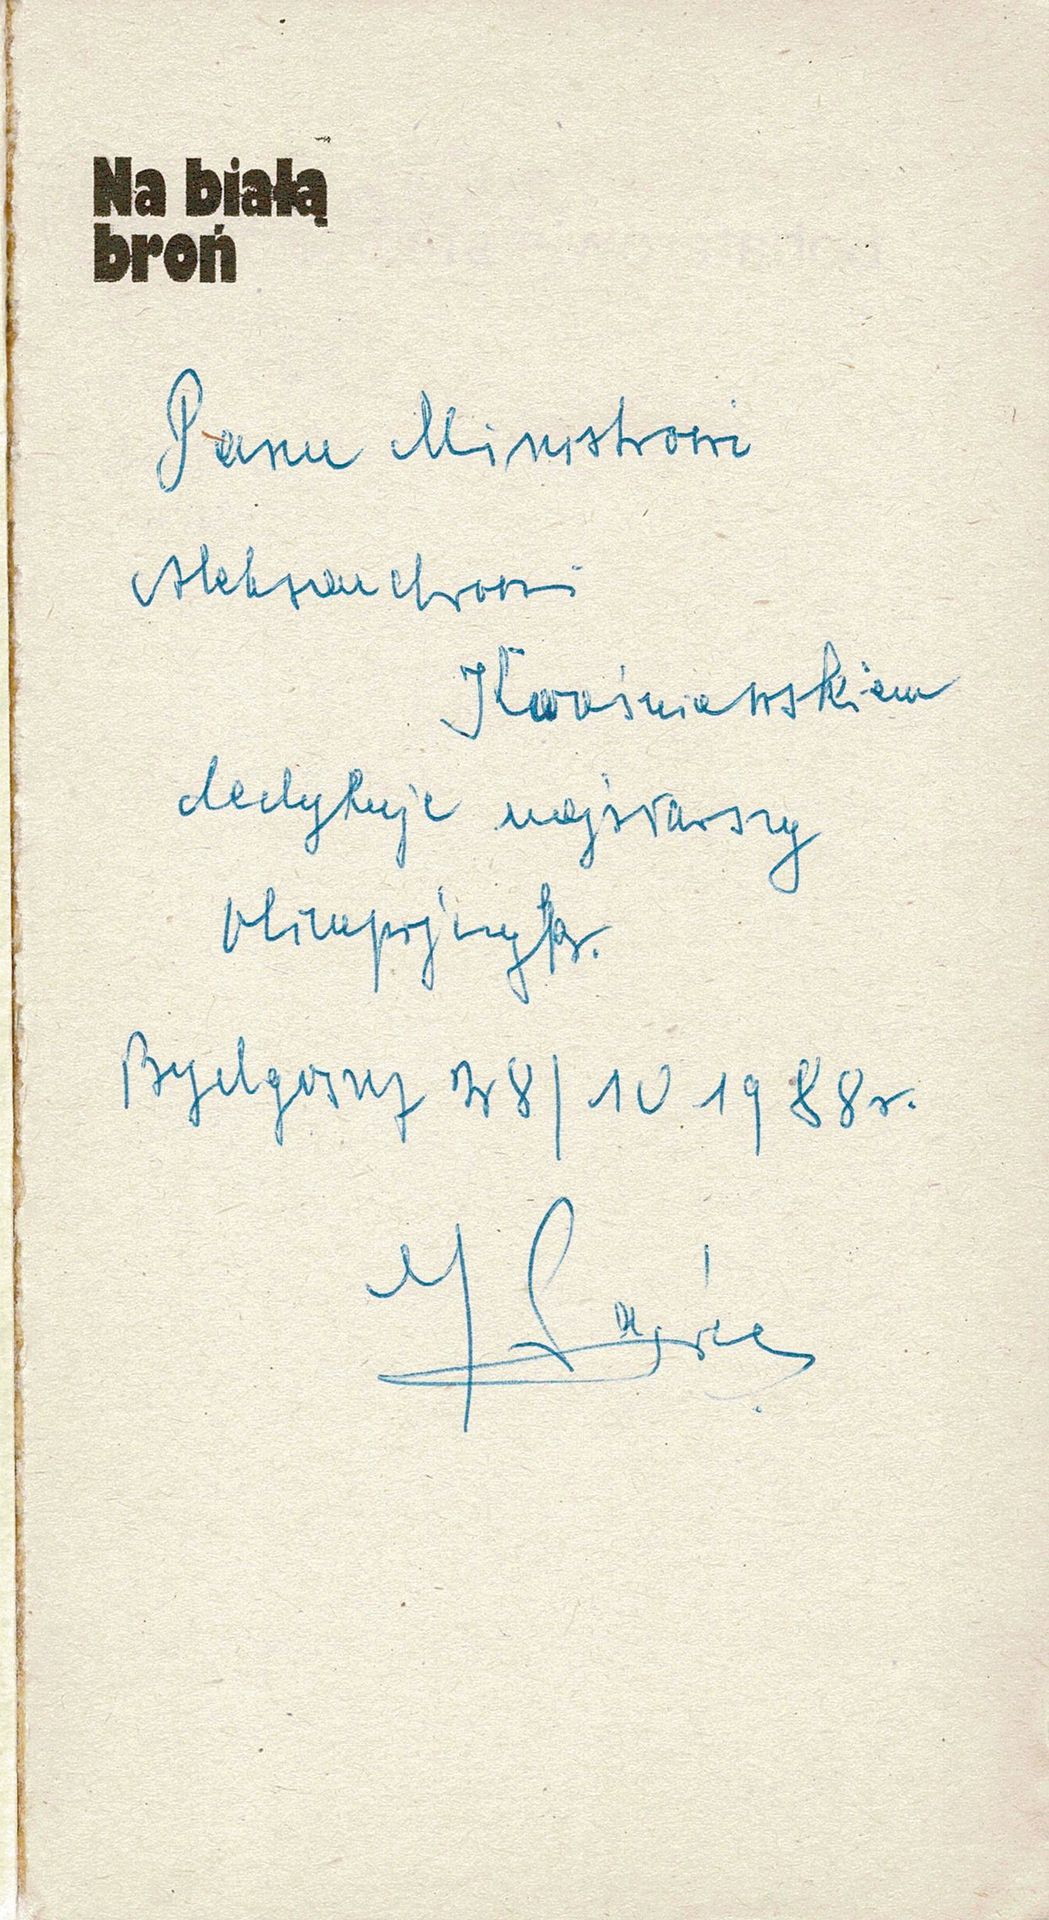 Na białą
broń
Panu Ministrowi
Aleksandrowi
Kwaśniewskiemu
dedykuje najstarszy
olimpijczyk.
Bydgoszcz 28/10 1988 r.